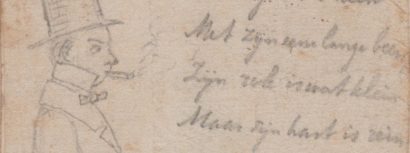 Met zijn eene lange been
Zijn rok is wat klein
Maar zijn hart is rein